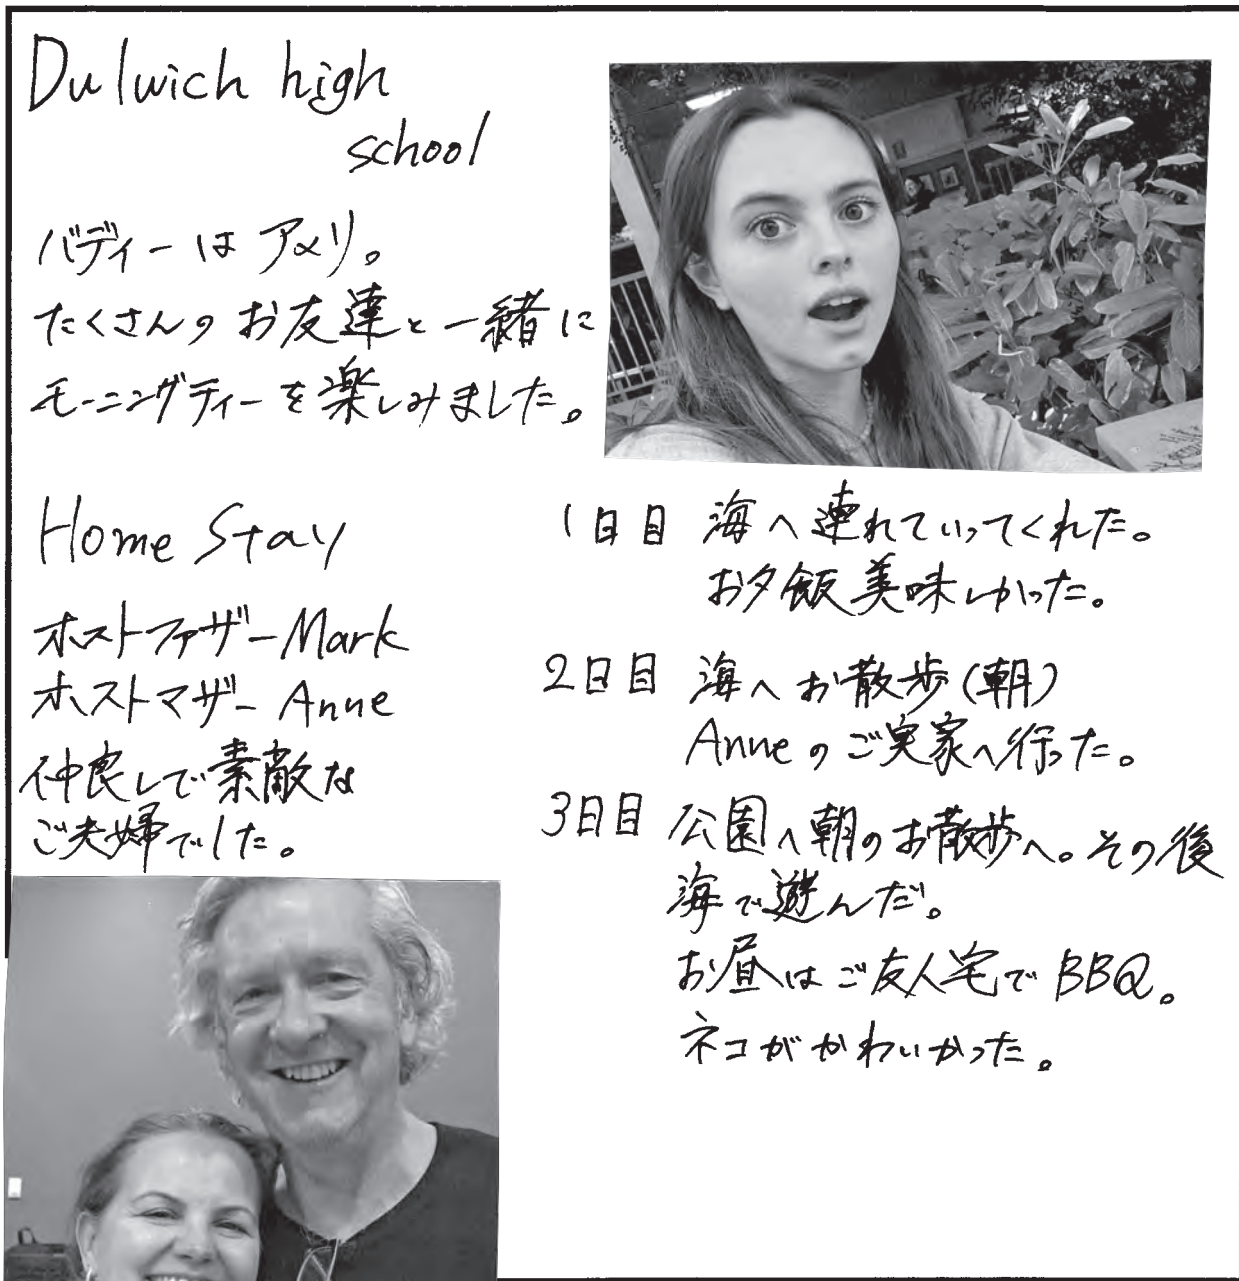 Dulwich high
school
バディーは アメリ。
たくさんの お友達と 一緒に
モーニングティーを楽しみました。
Home Stay
ホストファザーMark
ホストマザー Anne
仲良しで素敵な
ご夫婦でした。
1日目 海へ連れていってくれた。
お夕飯美味しかった。
2日目 海へお散歩(朝)
Anneのご実家へ行った。
3日目 公園へ朝のお散歩へ。その後
海で遊んだ。
お昼はご友人宅でBBQ。
ネコがかわいかった。